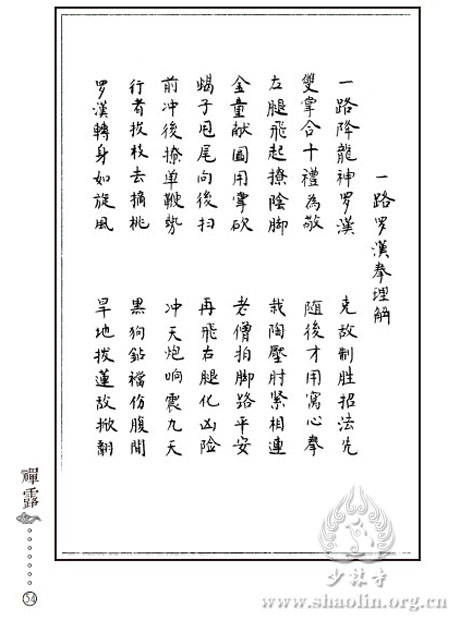 一路罗漢拳理解
一路降龍神罗漢 克敌制胜招法先
雙掌合十禮為敬 随後才用窩心拳
左腿飛起撩陰脚 栽陶壓肘緊相連
金童献圖用掌砍 老僧拍脚路平安
蝎子甩尾向後扫 再飛右腿化凶险
前冲後撩单鞭势 冲天炮响震九天
行者拔枝去摘桃 黑狗鉆襠仿腹間
罗漢轉身如旋風 旱地拔蓮敌掀翻
禪露
54
少林寺
www.shaolin.org.cn